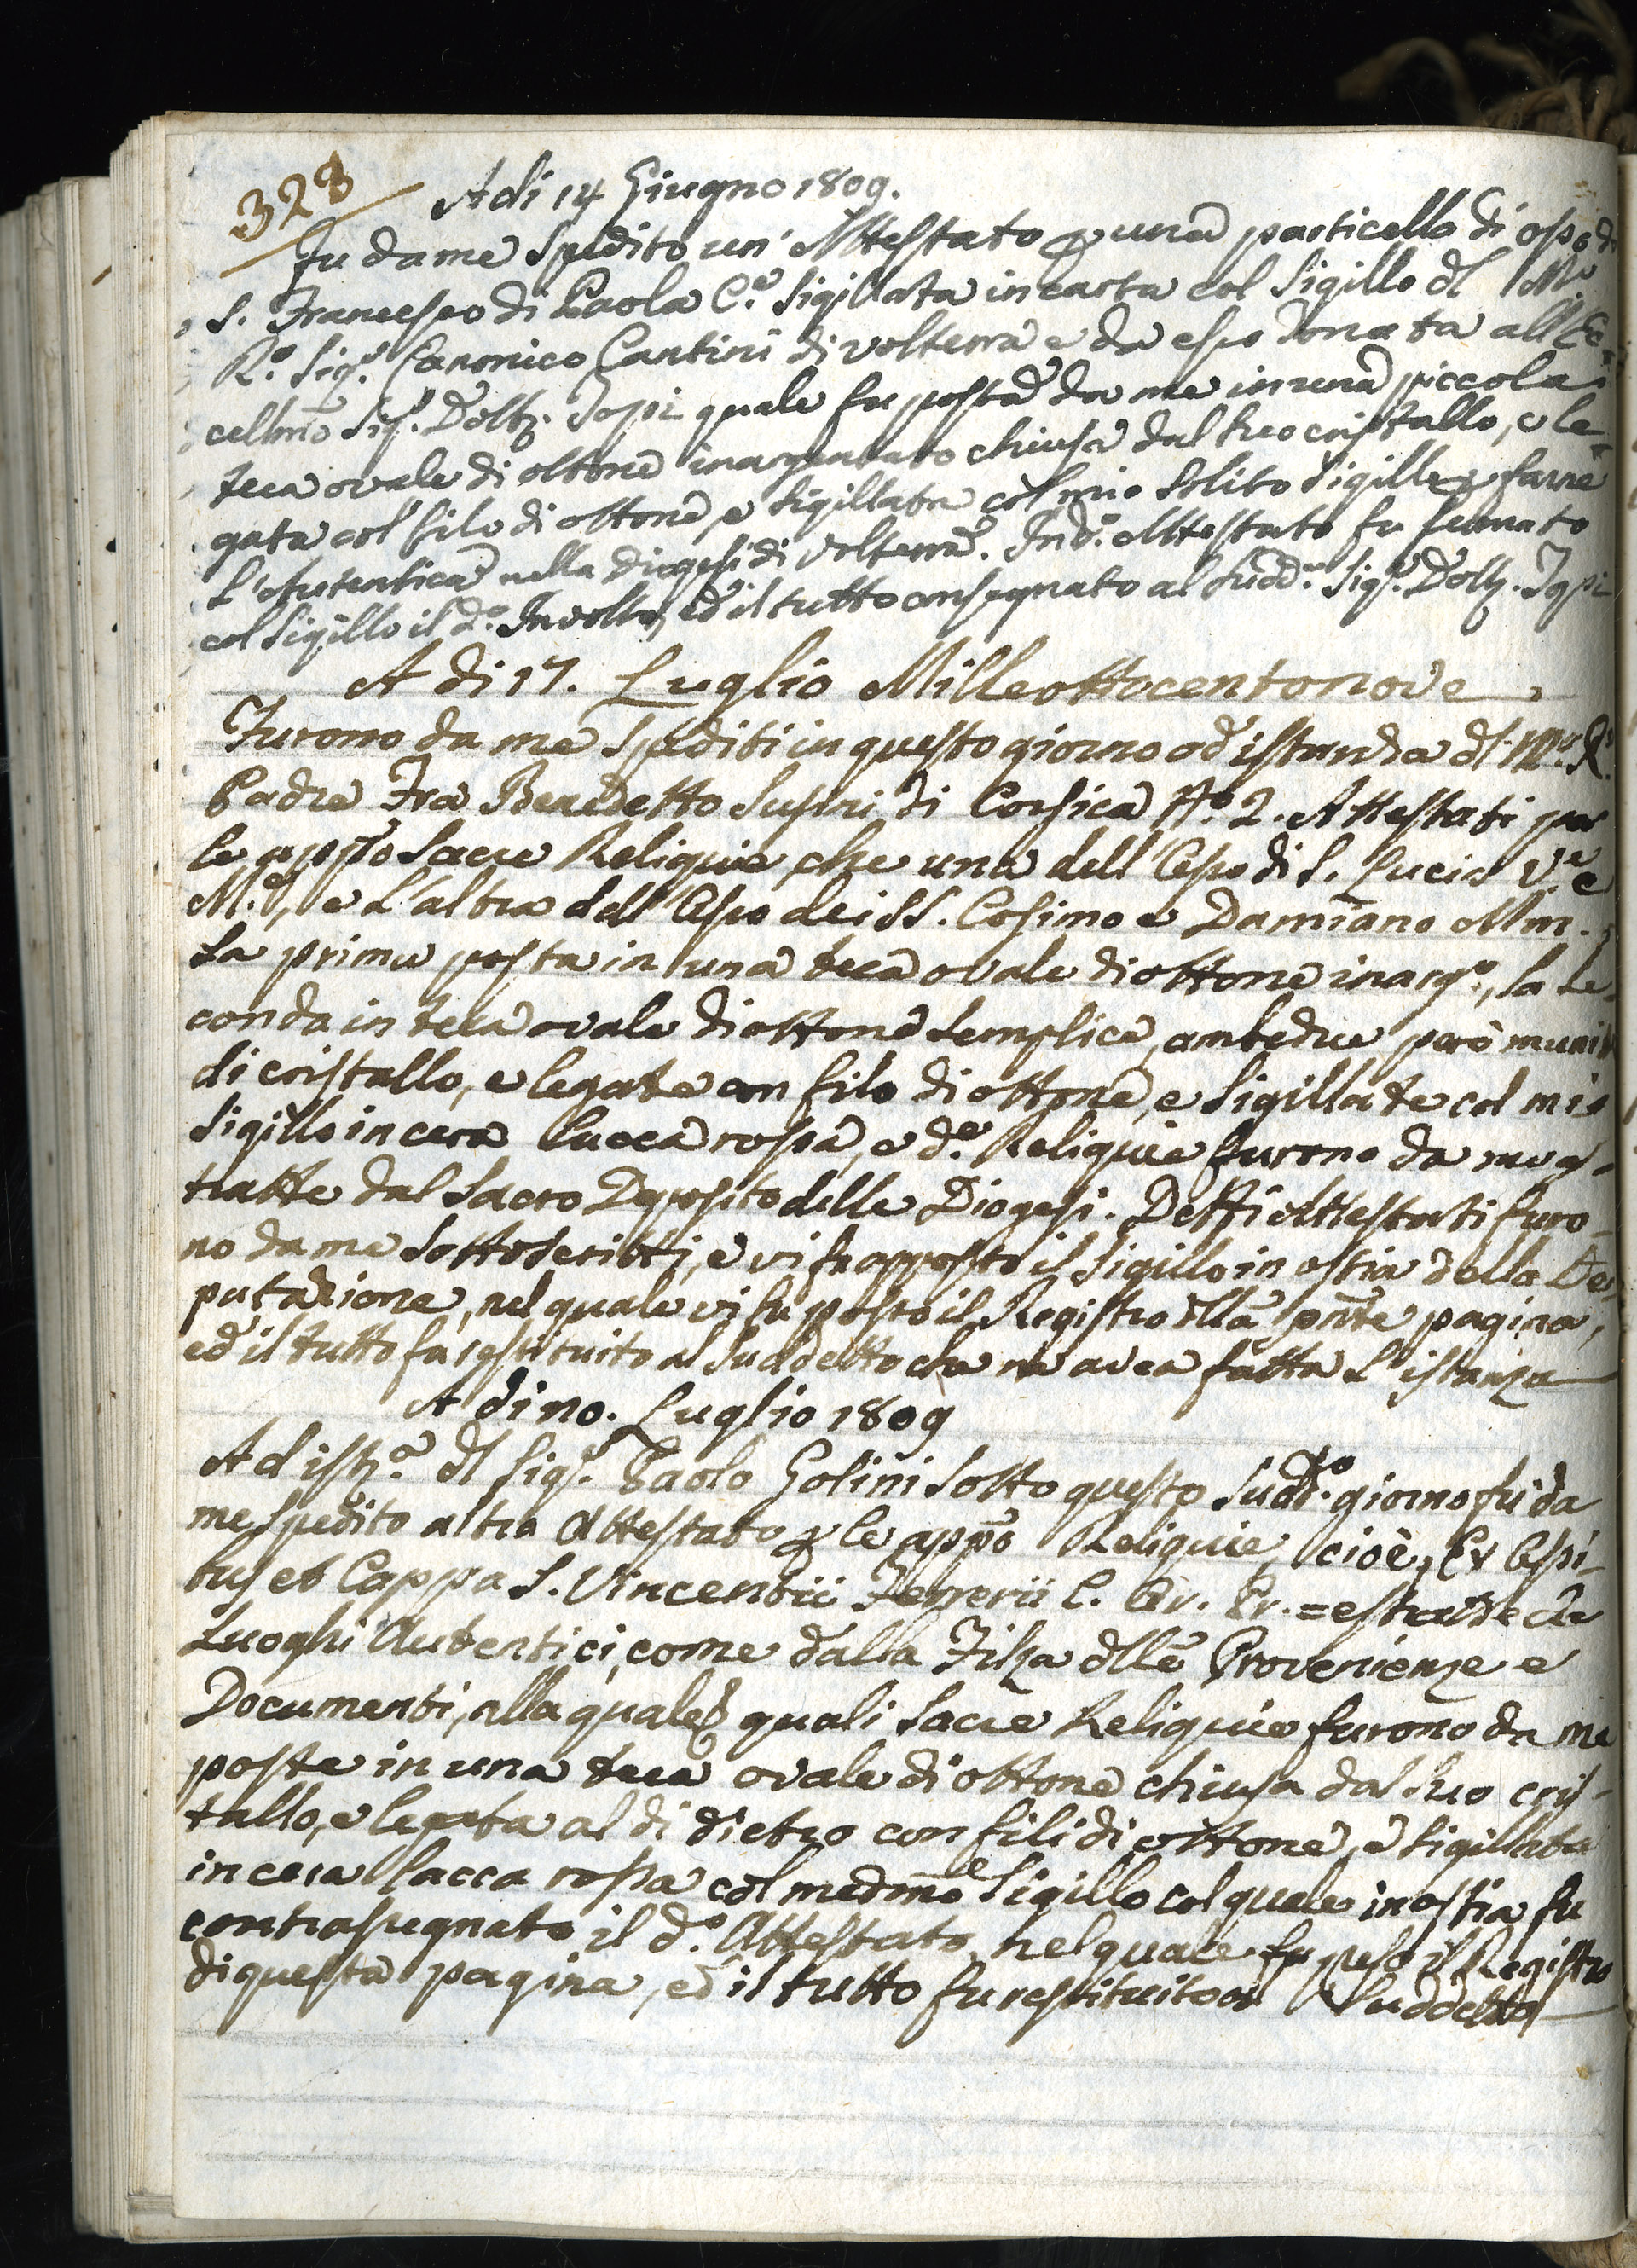 328
A di 14 Giugno 1809.
Fu da me spedito un' Attestato p una particella di osso di
S. Francesco di Paola C.e sigillata in carta col Sigillo dl Mo
R.o Sig.r Canonico Cantini di volterra e da esso donata all Ec=
cellmo Sig.r Dott. quale fu posta da me in una piccola
teca ovale di ottone inargentato chiusa dal suo cristallo, e le=
gata col filo di ottone, e sigillata col mio solito Sigillo p farne
L'Autentica nella Diogesi di Volterra. In d.o Attestato fu fermato
col Sigillo il d.o Involto, ed il tutto consegnato al sudd.o Sig.r Dott.
A di 17. Luglio Milleottocentonove
Furono da me spediti in questo giorno ad istanza dl M.o R.
Padre Fra Benedetto di Corsica N.o 2. Attestati per
le appsso Sacre Reliquie, che una dell' Osso di S. Lucia V.e e
M.e, e L'altra dell' Osso dei SS. Cosimo e Damiano Mm.
La prima posta in una teca ovale di ottone inarg.o, la se=
conda in teca ovale di ottone semplice, ambedue però munite
di cristallo, e legate con filo di ottone, e sigillate col mio
Sigillo in cera lacca rossa, e d.e Reliquie furono da me es=
tratte dal Sacro Deposito delle Diogesi. Detti Attestati furo=
no da me sottoscritti, e vi fu apposto il Sigillo in ostia della De=
putazione, nel quale vi fu posto il Registro dlla pnte pagina,
ed il tutto fu restituito al suddetto che ne avea fatta L'istanza
A di no. Luglio 1809
Ad ist.a dl Sig.r Paolo Golini sotto questo sudd.o giorno fu da
me spedito altro Attestato p le appo Reliquie, cioè, Ex Ossi=
bus et Cappa S. Vincentii Ferrerii C. Or. Pr. = estratte da
Luoghi Autentici, come dalla Filza dlle Provenienze e
Documenti, alla quale quali Sacre Reliquie furono da me
poste in una teca ovale di ottone chiusa dal suo cris=
tallo, e legata al di dietro con fili di ottone, e sigillata
in cera lacca rossa col medmo Sigillo col quale in ostia fu
contrasegnato il d.o Attestato, nel quale fu il Registro
di questa pagina, ed il tutto fu restituito al suddetto